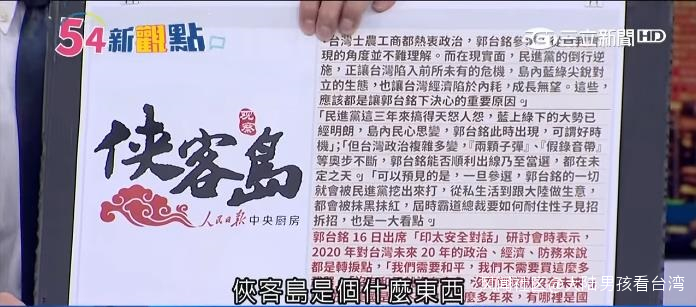 54新觀點
三立新聞HD
觀察
俠客島
人民日報 中央厨房
「台灣士農工商都熱衷政治，郭台銘參
現的角度並不難理解。而在現實面，民進黨的倒行逆
施，正讓台灣陷入前所未有的危機，島內藍綠尖銳對
立的生態，也讓台灣經濟陷於內耗，成長無望。這些，
應該都是讓郭台銘下決心的重要原因。」
「民進黨這三年來搞得天怒人怨，藍上綠下的大勢已
經明朗，島內民心思變，郭台銘此時出現，可謂好時
機」；「但台灣政治複雜多變，『兩顆子彈』、『假錄音帶』
等奧步不斷，郭台銘能否順利出線乃至當選，都在未
定之天。」「可以預見的是，一旦參選，郭台銘的一切
就會被民進黨挖出來打，從私生活到跟大陸做生意，
都會被抹黑抹紅，屆時霸道總裁要如何耐住性子見招
拆招，也是一大看點。」
郭台銘16日出席「印太安全對話」研討會時表示，
2020年對台灣未來20年的政治、經濟、防務來說
都是轉捩點，「我們需要和平，我們不需要買這麼多
俠客島是個什麼東西
大陸男孩看台湾